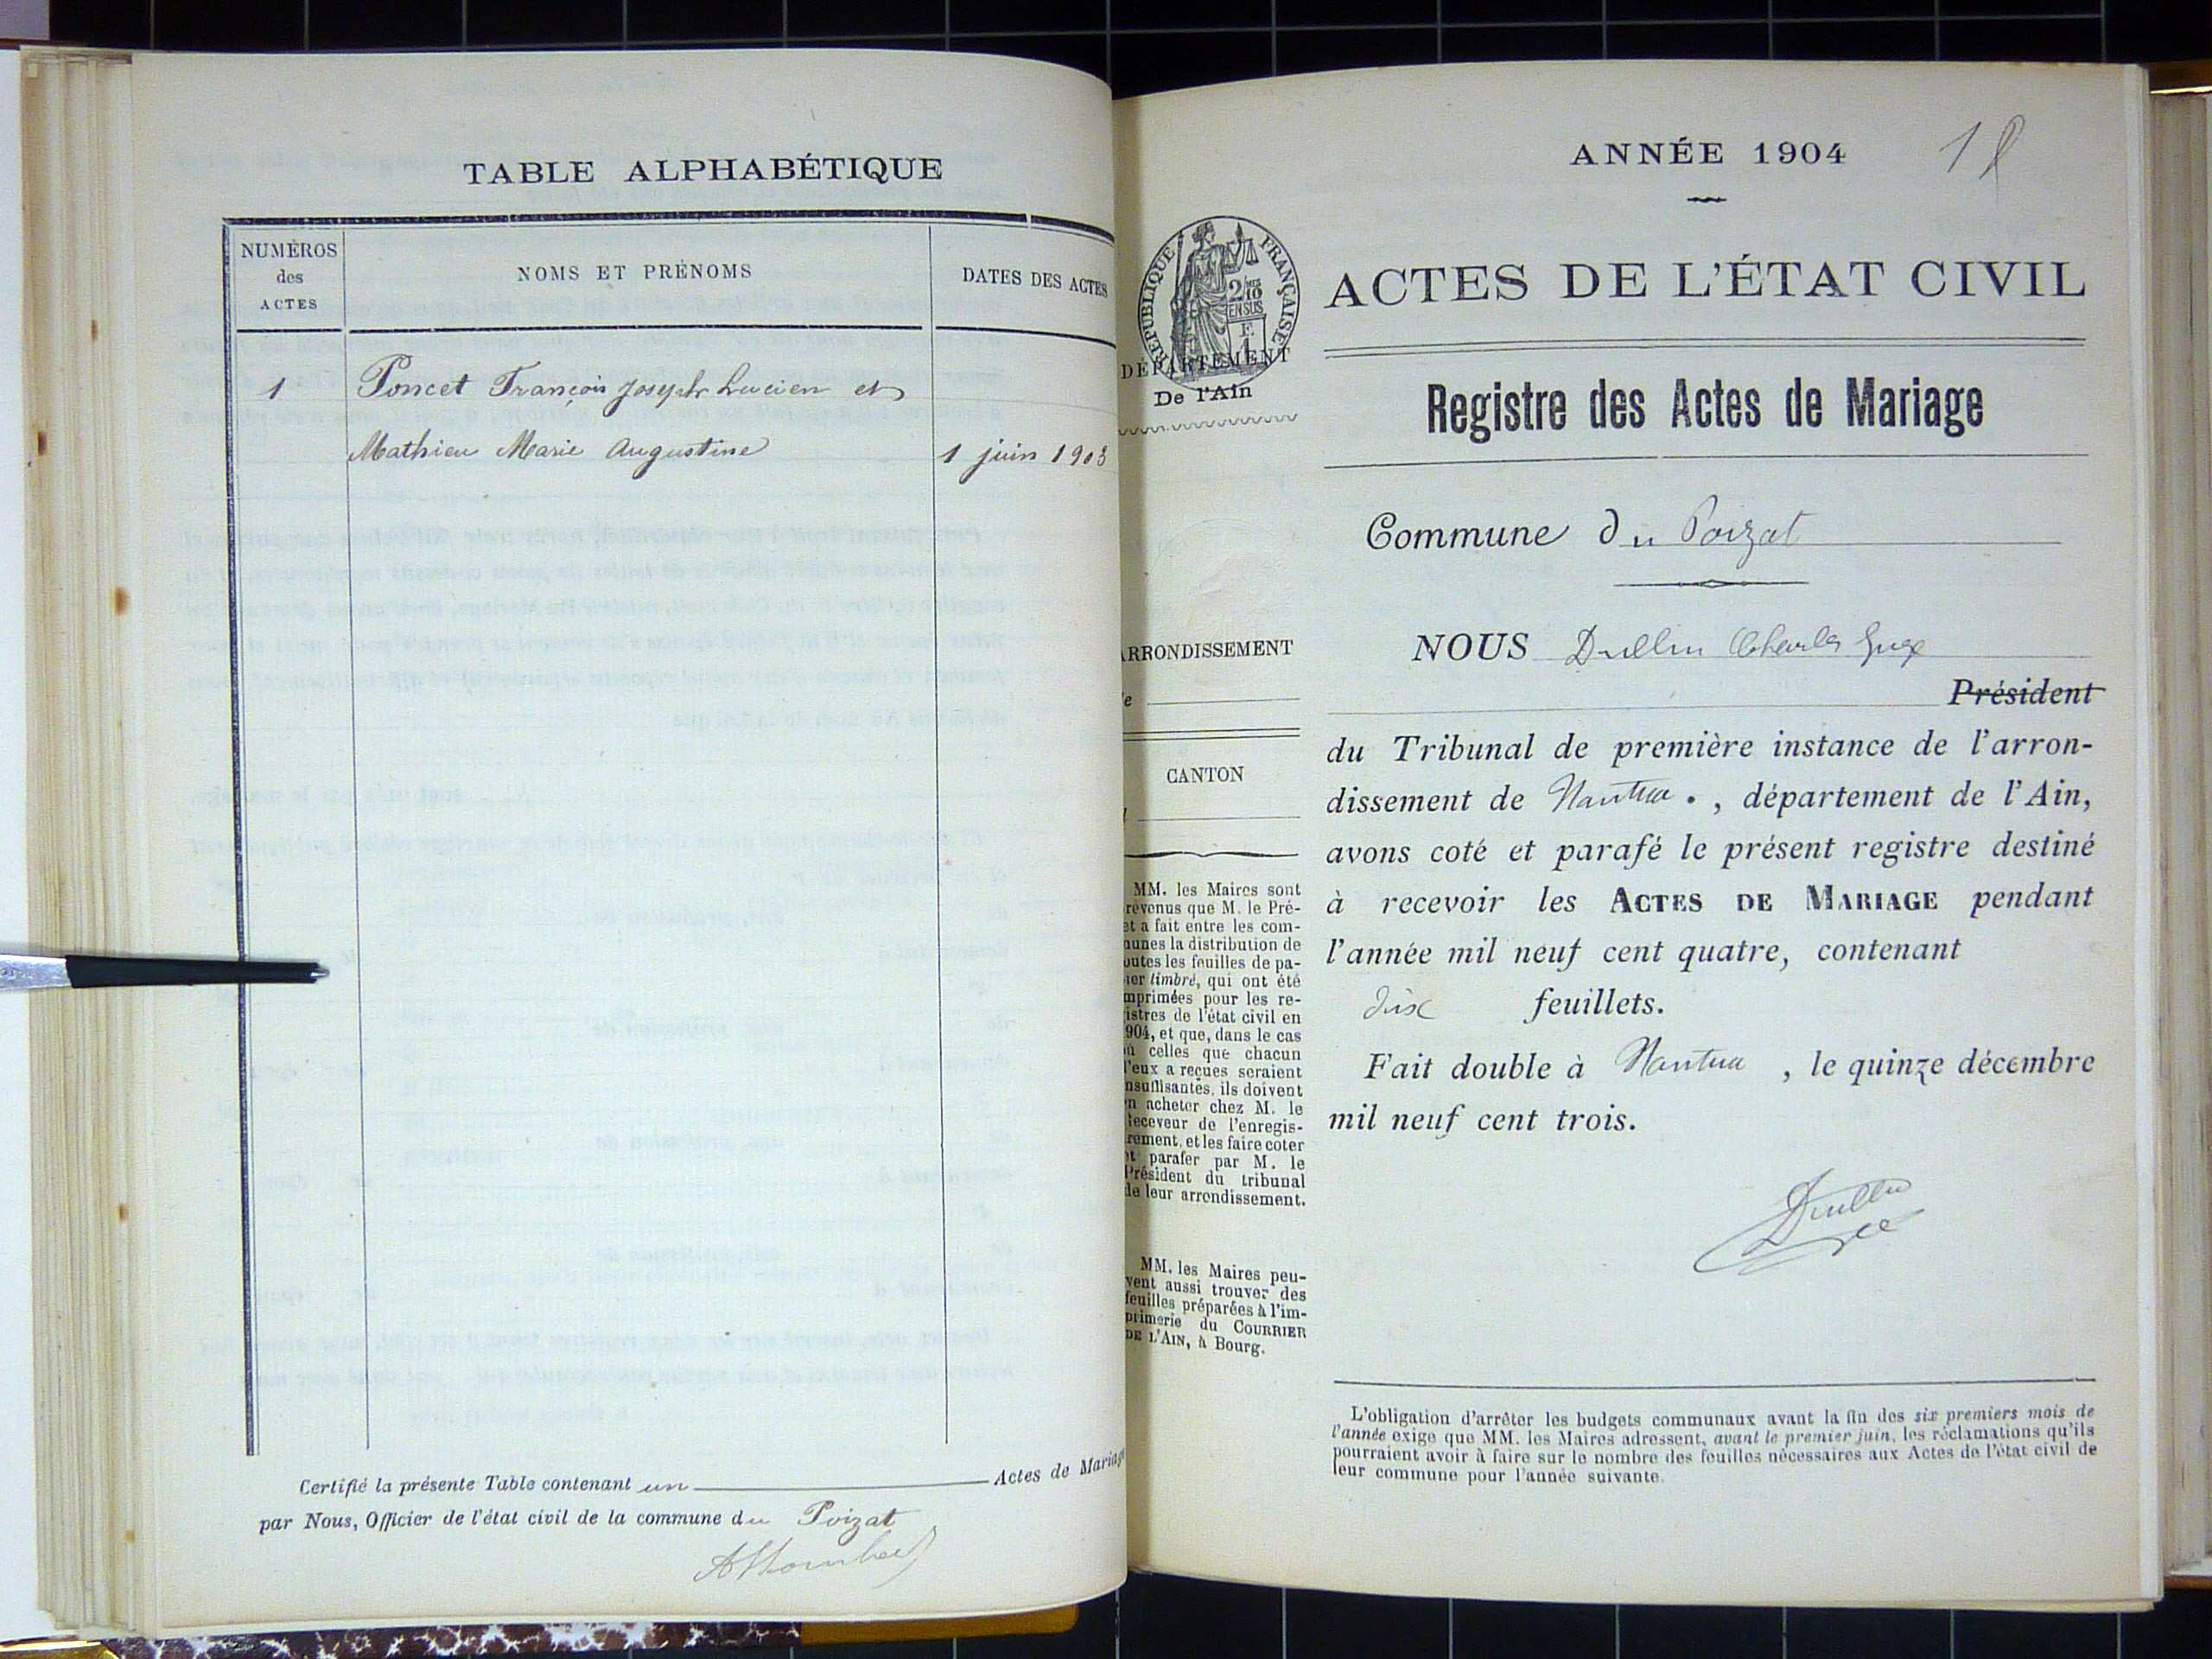 TABLE ALPHABÉTIQUE
NUMÉROS
des
ACTES
NOMS ET PRÉNOMS
DATES DES ACTES
1 Poncet François Joseph Lucien et
Mathieu Marie Augustine 1 juin 1903
Certifié la présente Table contenant un Actes de Mariage
par Nous, Officier de l'état civil de la commune du Poizat
ANNÉE 1904
RÉPUBLIQUE FRANÇAISE
2/10 EN SUS
DÉPARTEMENT
De l'Ain
ARRONDISSEMENT
CANTON
MM. les Maires sont
révenus que M. le Pré-
et a fait entre les com-
munes la distribution de
outes les feuilles de pa-
ier timbré, qui ont été
mprimées pour les re-
istres de l'état civil en
904, et que, dans le cas
ù celles que chacun
l'eux a reçues seraient
nsuffisantes, ils doivent
n acheter chez M. le
receveur de l'enregis-
rement, et les faire coter
et parafer par M. le
Président du tribunal
de leur arrondissement.
MM. les Maires peu-
vent aussi trouver des
feuilles préparées à l'im-
primerie du COURRIER
DE L'AIN, à Bourg.
ACTES DE L'ÉTAT CIVIL
Registre des Actes de Mariage
Commune du Poizat
NOUS Dullin Charles
Président
du Tribunal de première instance de l'arron-
dissement de Nantua . , département de l'Ain,
avons coté et parafé le présent registre destiné
à recevoir les ACTES DE MARIAGE pendant
l'année mil neuf cent quatre, contenant
dix feuillets.
Fait double à Nantua , le quinze décembre
mil neuf cent trois.
Dullin
L'obligation d'arrêter les budgets communaux avant la fin des six premiers mois de
l'année exige que MM. les Maires adressent, avant le premier juin, les réclamations qu'ils
pourraient avoir à faire sur le nombre des feuilles nécessaires aux Actes de l'état civil de
leur commune pour l'année suivante.